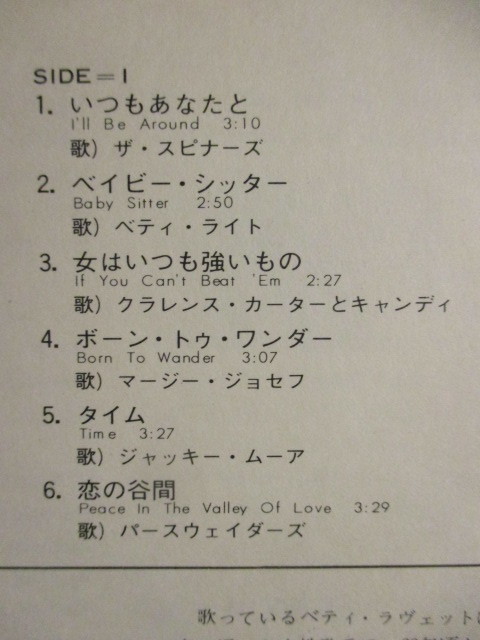 SIDE=1
1. いつもあなたと
I'll Be Around 3:10
歌) ザ・スピナーズ
2. ベイビー・シッター
Baby Sitter 2:50
歌) ベティ・ライト
3. 女はいつも強いもの
If You Can't Beat 'Em 2:27
歌) クラレンス・カーターとキャンディ
4. ボーン・トゥ・ワンダー
Born To Wander 3:07
歌) マージー・ジョセフ
5. タイム
Time 3:27
歌) ジャッキー・ムーア
6. 恋の谷間
Peace In The Valley Of Love 3:29
歌) パースウェイダーズ
歌っているベティ・ラヴェット